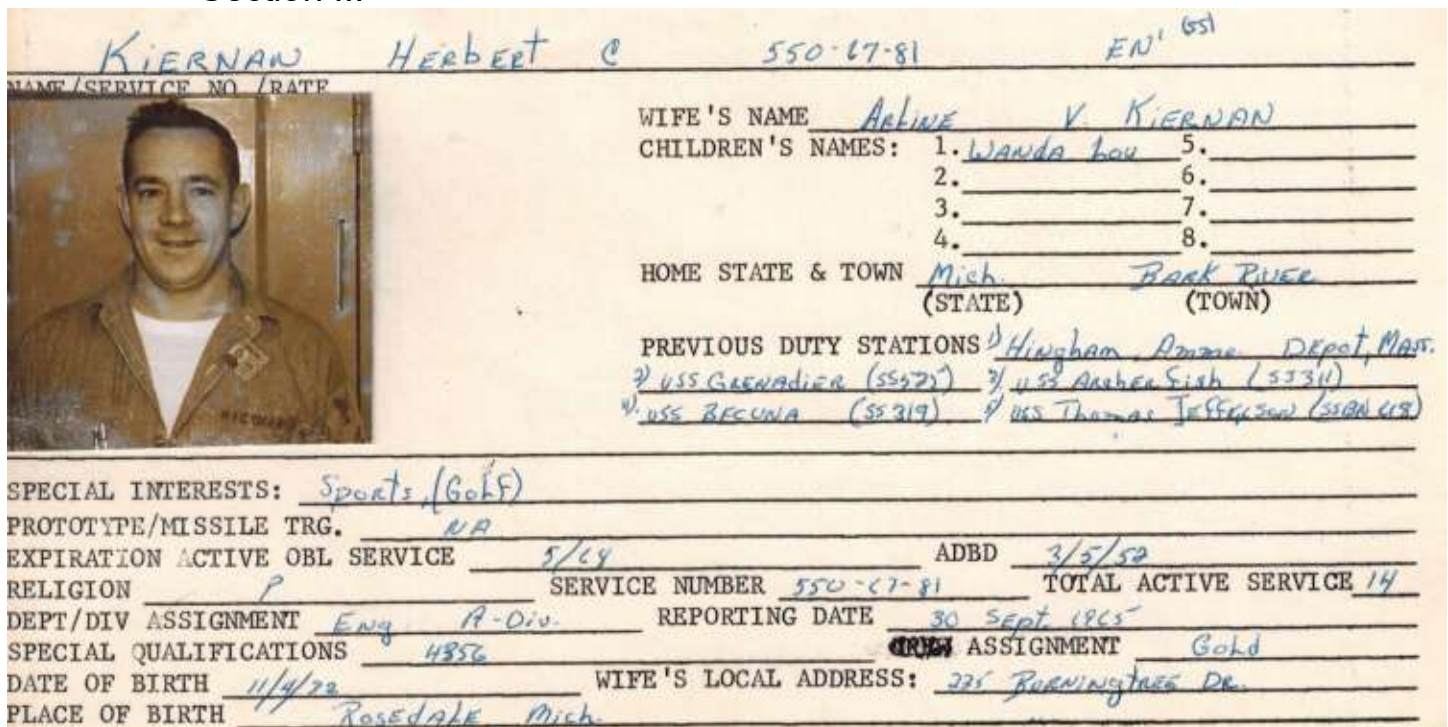 Section III
KIERNAN Herbert C 550-67-81 EN1 (SS)
NAME/SERVICE NO./RATE
WIFE'S NAME Arline V. KIERNAN
CHILDREN'S NAMES: 1. Wanda Lou 5.
2. 6.
3. 7.
4. 8.
HOME STATE & TOWN Mich. BARK RIVER
(STATE) (TOWN)
PREVIOUS DUTY STATIONS 1) Hingham Ammo Depot, Mass.
2) USS GRENADIER (SS525) 3) USS Archer fish (SS311)
4) USS BECUNA (SS319) 5) USS Thomas JEFFERSON (SSBN 618)
SPECIAL INTERESTS: Sports, (GolF)
PROTOTYPE/MISSILE TRG. NA
EXPIRATION ACTIVE OBL SERVICE ADBD 3/5/52
RELIGION P SERVICE NUMBER 550-67-81 TOTAL ACTIVE SERVICE 14
DEPT/DIV ASSIGNMENT Eng A-Div. REPORTING DATE 30 Sept. 1965
SPECIAL QUALIFICATIONS 4356 ASSIGNMENT Gold
DATE OF BIRTH WIFE'S LOCAL ADDRESS: DR.
PLACE OF BIRTH ROSEDALE Mich.